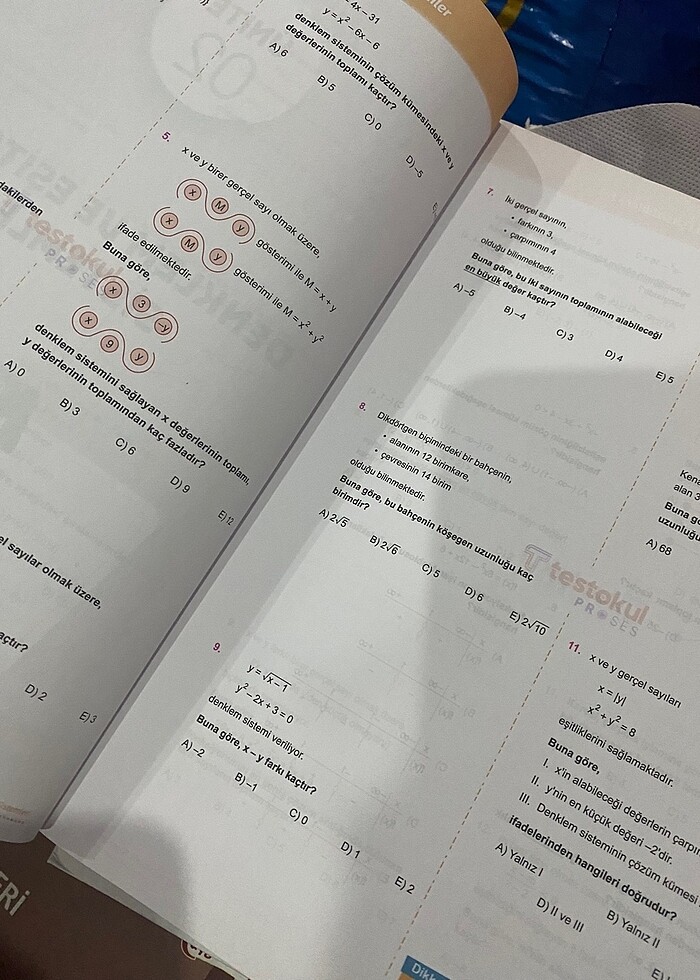 4x – 31
y = x² – 6x – 6
denklem sisteminin çözüm kümesindeki x ve y
değerlerinin toplamı kaçtır?
A) 6
B) 5
C) 0
D) –5
E)
5.
x ve y birer gerçel sayı olmak üzere,
x M y gösterimi ile M = x + y
x M y gösterimi ile M = x² + y²
ifade edilmektedir.
Buna göre,
x 3 –y
x 9 y
denklem sistemini sağlayan x değerlerinin toplamı,
y değerlerinin toplamından kaç fazladır?
A) 0
B) 3
C) 6
D) 9
E) 12
dakilerden
el sayılar olmak üzere,
açtır?
D) 2
E) 3
7.
İki gerçel sayının,
• farkının 3,
• çarpımının 4
olduğu bilinmektedir.
Buna göre, bu iki sayının toplamının alabileceği
en büyük değer kaçtır?
A) –5
B) –4
C) 3
D) 4
E) 5
8.
Dikdörtgen biçimindeki bir bahçenin,
• alanının 12 birimkare,
• çevresinin 14 birim
olduğu bilinmektedir.
Buna göre, bu bahçenin köşegen uzunluğu kaç
birimdir?
A) 2√5
B) 2√6
C) 5
D) 6
E) 2√10
testokul
PROSES
9.
y = √x – 1
y² – 2x + 3 = 0
denklem sistemi veriliyor.
Buna göre, x – y farkı kaçtır?
A) –2
B) –1
C) 0
D) 1
E) 2
Kena
alan 3
Buna g
uzunluğu
A) 68
11.
x ve y gerçel sayıları
x = |y|
x² + y² = 8
eşitliklerini sağlamaktadır.
Buna göre,
I. x'in alabileceği değerlerin çarpım
II. y'nin en küçük değeri –2'dir.
III. Denklem sisteminin çözüm kümesi
ifadelerinden hangileri doğrudur?
A) Yalnız I
B) Yalnız II
D) II ve III
E)
Dikk